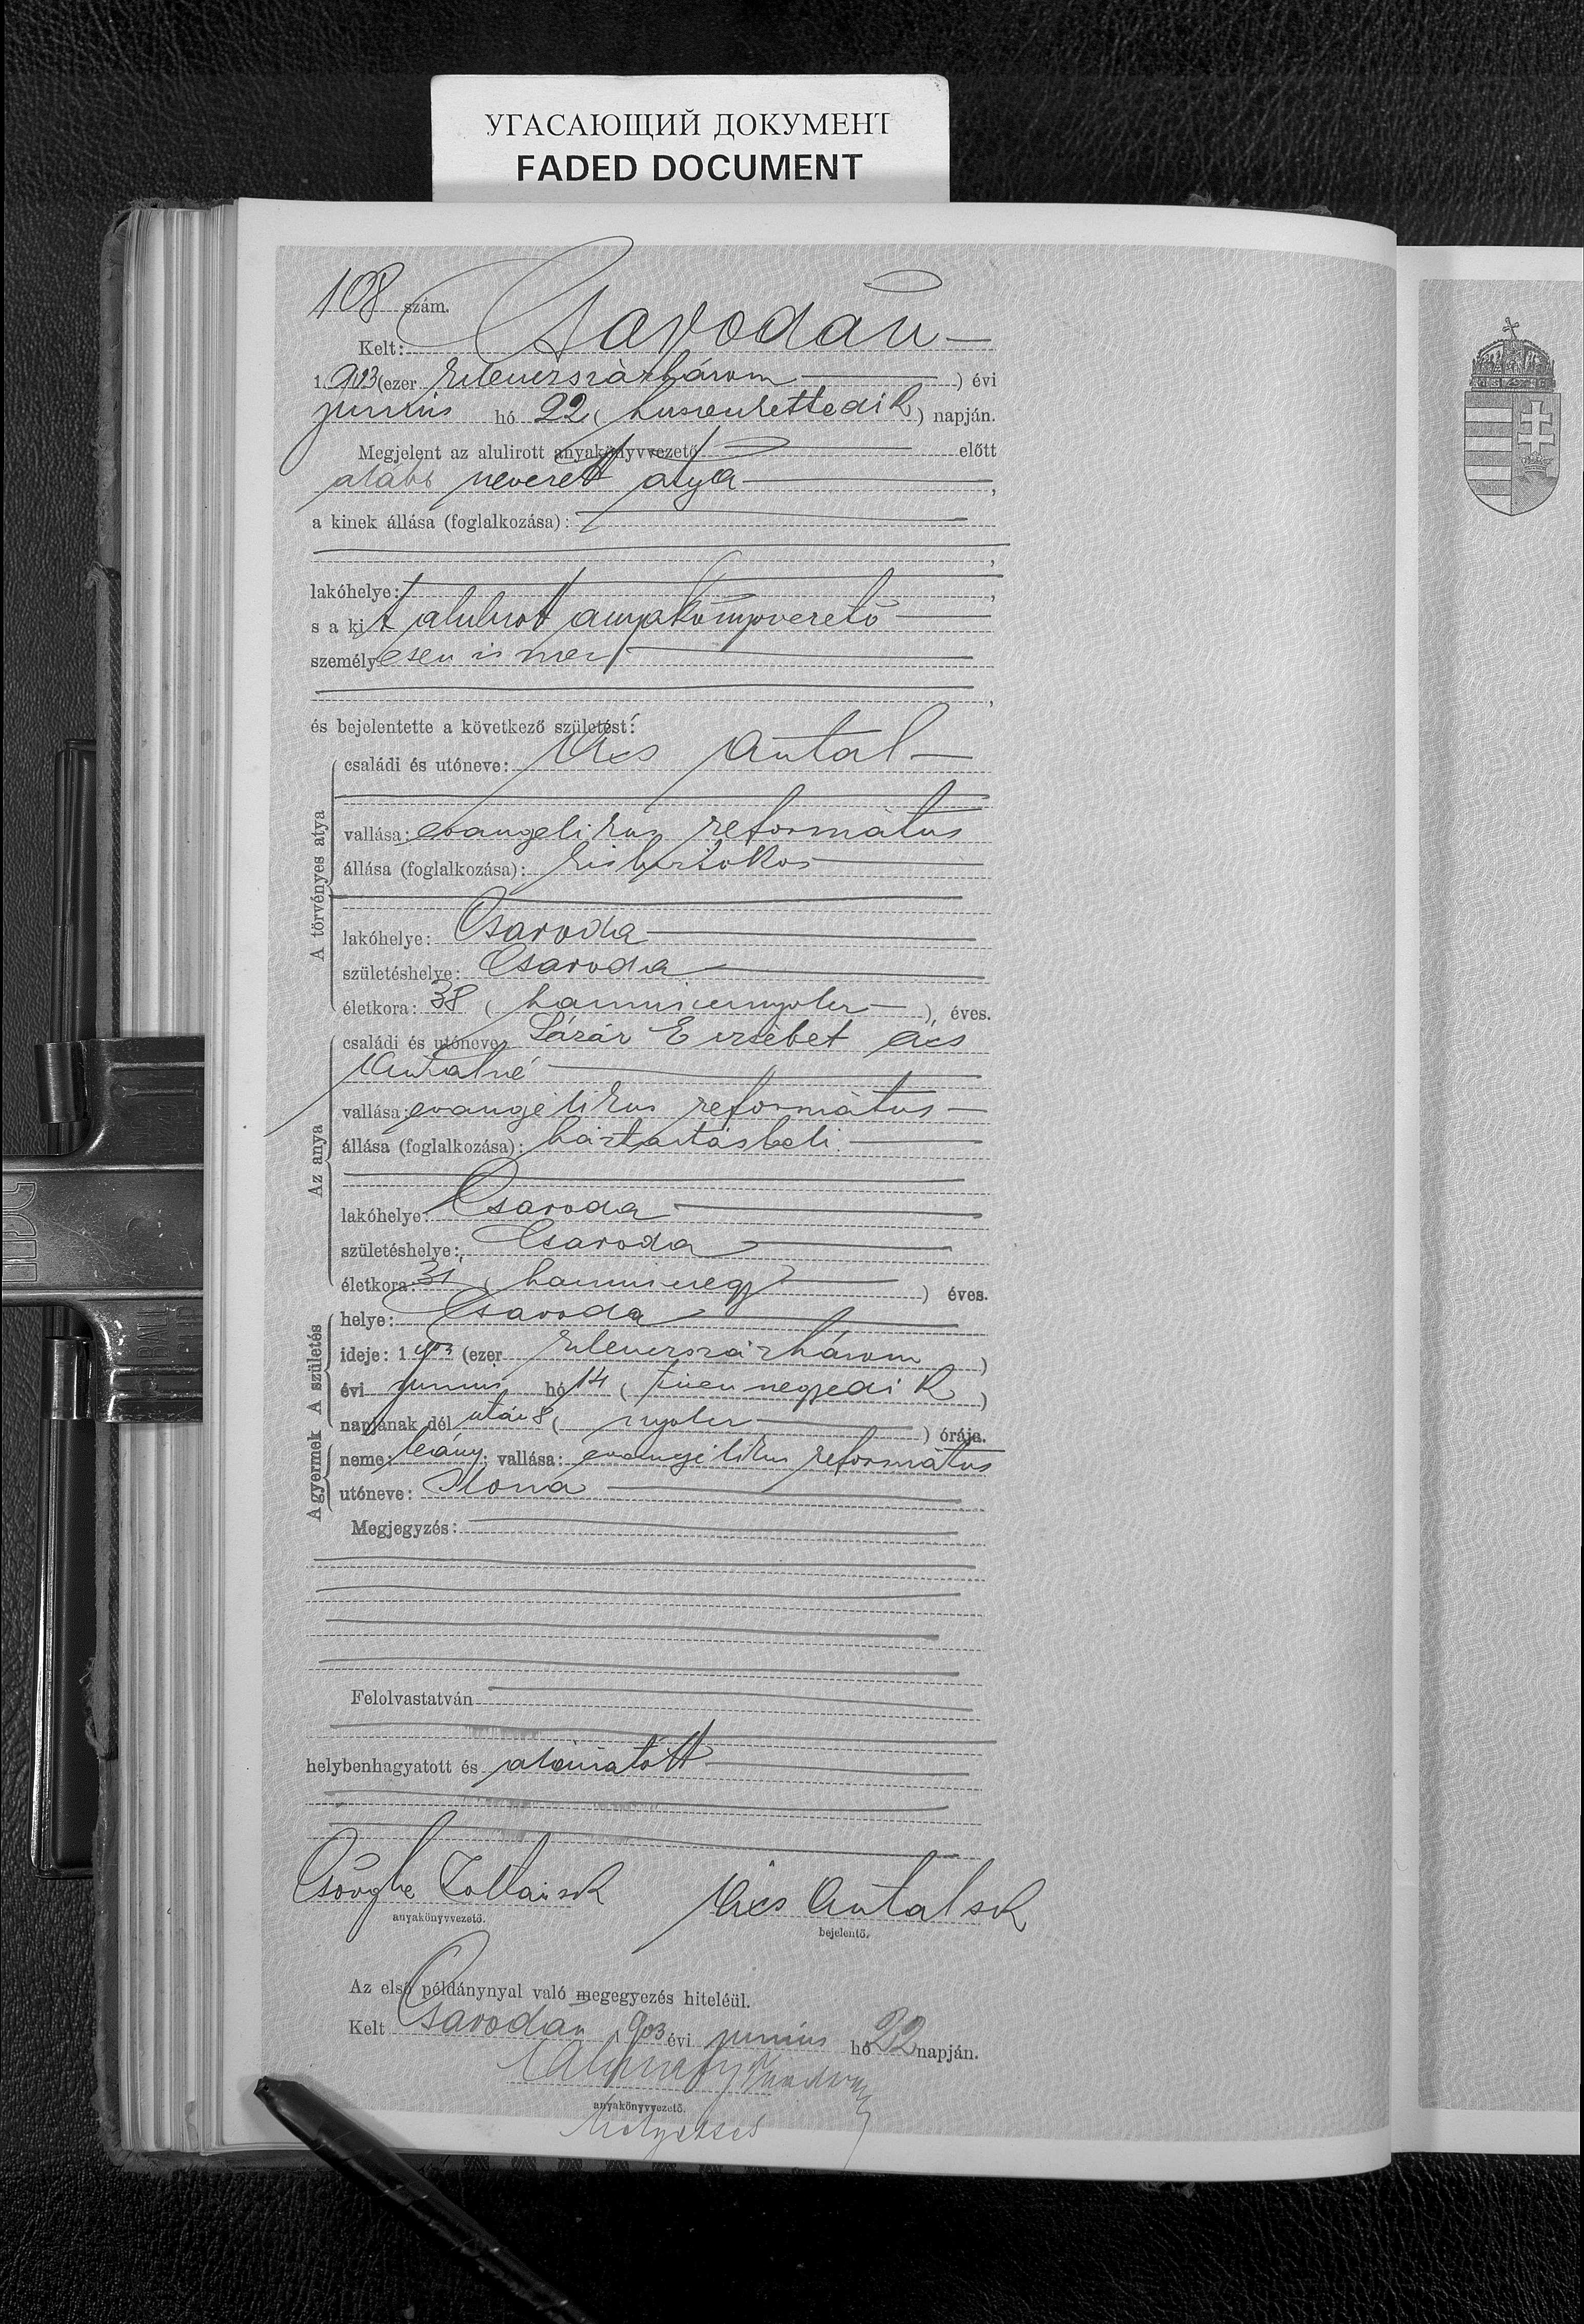 УГАСАЮЩИЙ ДОКУМЕНТ
FADED DOCUMENT
108 szám.
Kelt: Csarodán
1.903 (ezer kilencszázhárom) évi
junius hó 22 (huszenkettedik) napján.
Megjelent az alulirott anyakönyvvezető előtt
alább nevezett atya,
a kinek állása (foglalkozása):
lakóhelye:
s a kit alulirott anyakönyvezető
személyesen ismer,
és bejelentette a következő születést:
A törvényes atya
családi és utóneve: Ács Antal
vallása: evangelikus református
állása (foglalkozása): kisbirtokos
lakóhelye: Csaroda
születéshelye: Csaroda
életkora: 38 (harmincnyolcz) éves.
Az anya
családi és utóneve: Lázár Erzsébet Ács
Antalné
vallása: evangélikus református
állása (foglalkozása): háztartásbeli.
lakóhelye: Csaroda
születéshelye: Csaroda
életkora: 31 (harmincegy) éves.
A születés
helye: Csaroda
ideje: 1903 (ezer kilenczszázhárom)
évi junius hó 14 (tizennegyedik)
napjának dél után 8 (nyolcz) órája.
A gyermek
neme: leány; vallása: evangélikus református
utóneve: Ilona
Megjegyzés:
Felolvastatván
helybenhagyatott és aláiratott
Csörghe Zoltán sk Ács Antal sk
anyakönyvvezető. bejelentő.
Az első példánynyal való megegyezés hiteléül.
Kelt Csarodán 1903 évi junius hó 22 napján.
anyakönyvvezető.
helyettes